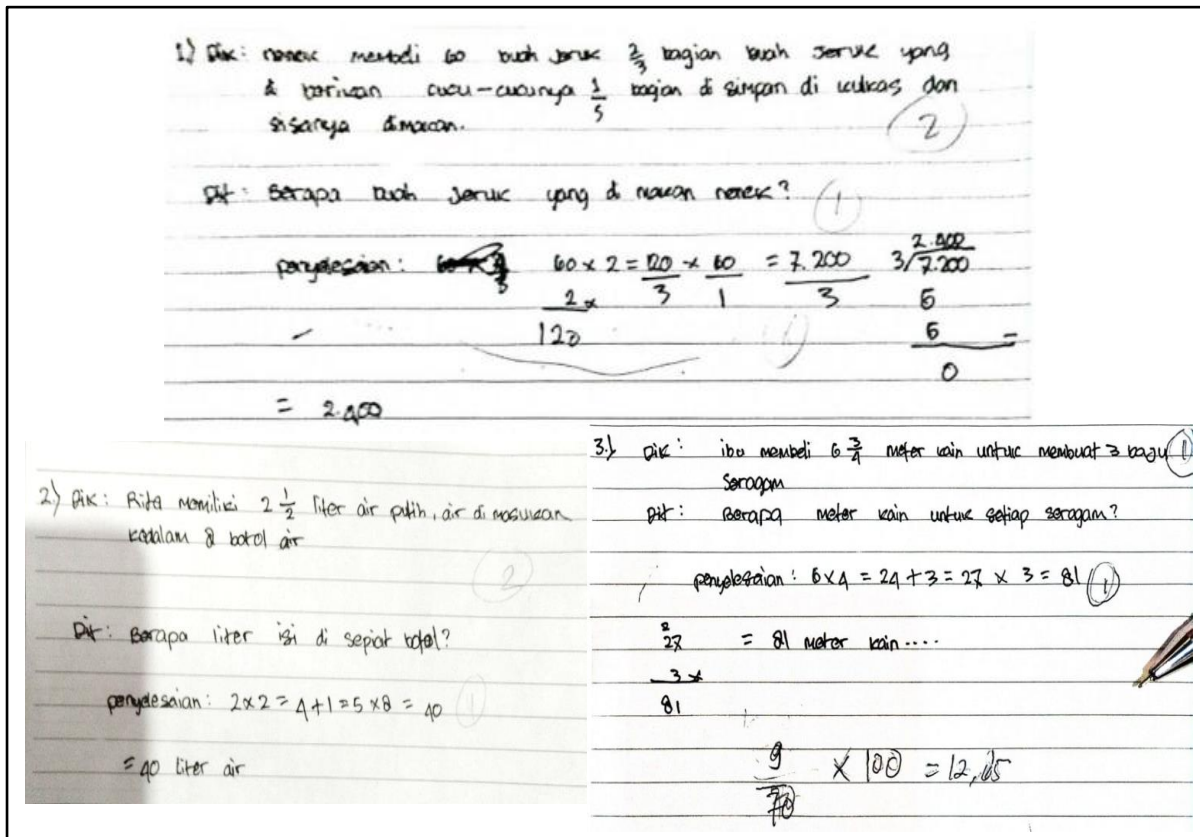 1.) Dik: nenek membeli 60 buah jeruk 2/3 bagian buah jeruk yang
di berikan cucu-cucunya 1/5 bagian di simpan di kulkas dan
sisanya dimakan.
2
Dit: Berapa buah jeruk yang di makan nenek?
1
penyelesaian: 60 x 2 = 120/3 x 60/1 = 7.200/3 3/7.200
2.400
2 x
120
6
6 -
0
= 2.400
2) Dik: Rita memiliki 2 1/2 liter air putih, air di masukan
kedalam 8 botol air
2
Dit: Berapa liter isi di sepiat botol?
penyelesaian: 2x2 = 4+1 = 5 x8 = 40
1
= 40 liter air
3.) Dik: ibu membeli 6 3/4 meter kain untuk membuat 3 baju
1
Seragam
Dit: Berapa meter kain untuk setiap seragam?
penyelesaian: 6x4 = 24 + 3 = 27 x 3 = 81
1
2
27 = 81 meter kain....
3 x
81
9/70 x 100 = 12,85